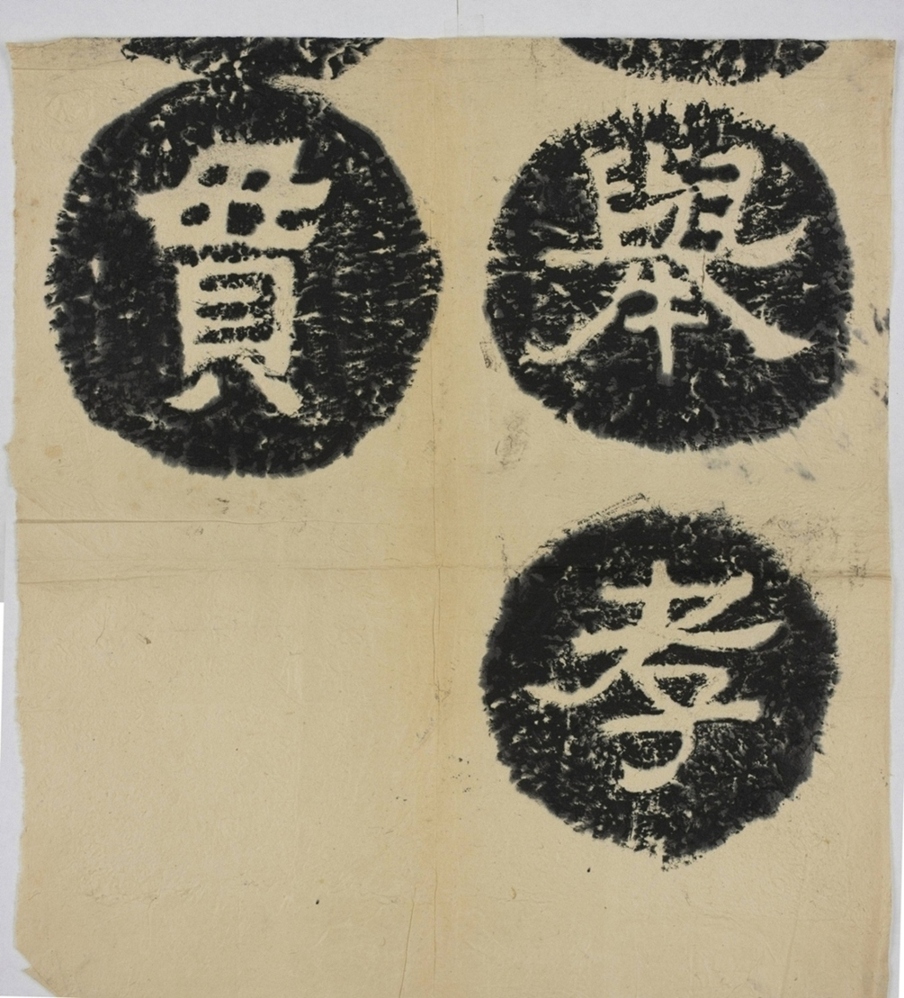 舉孝
貫